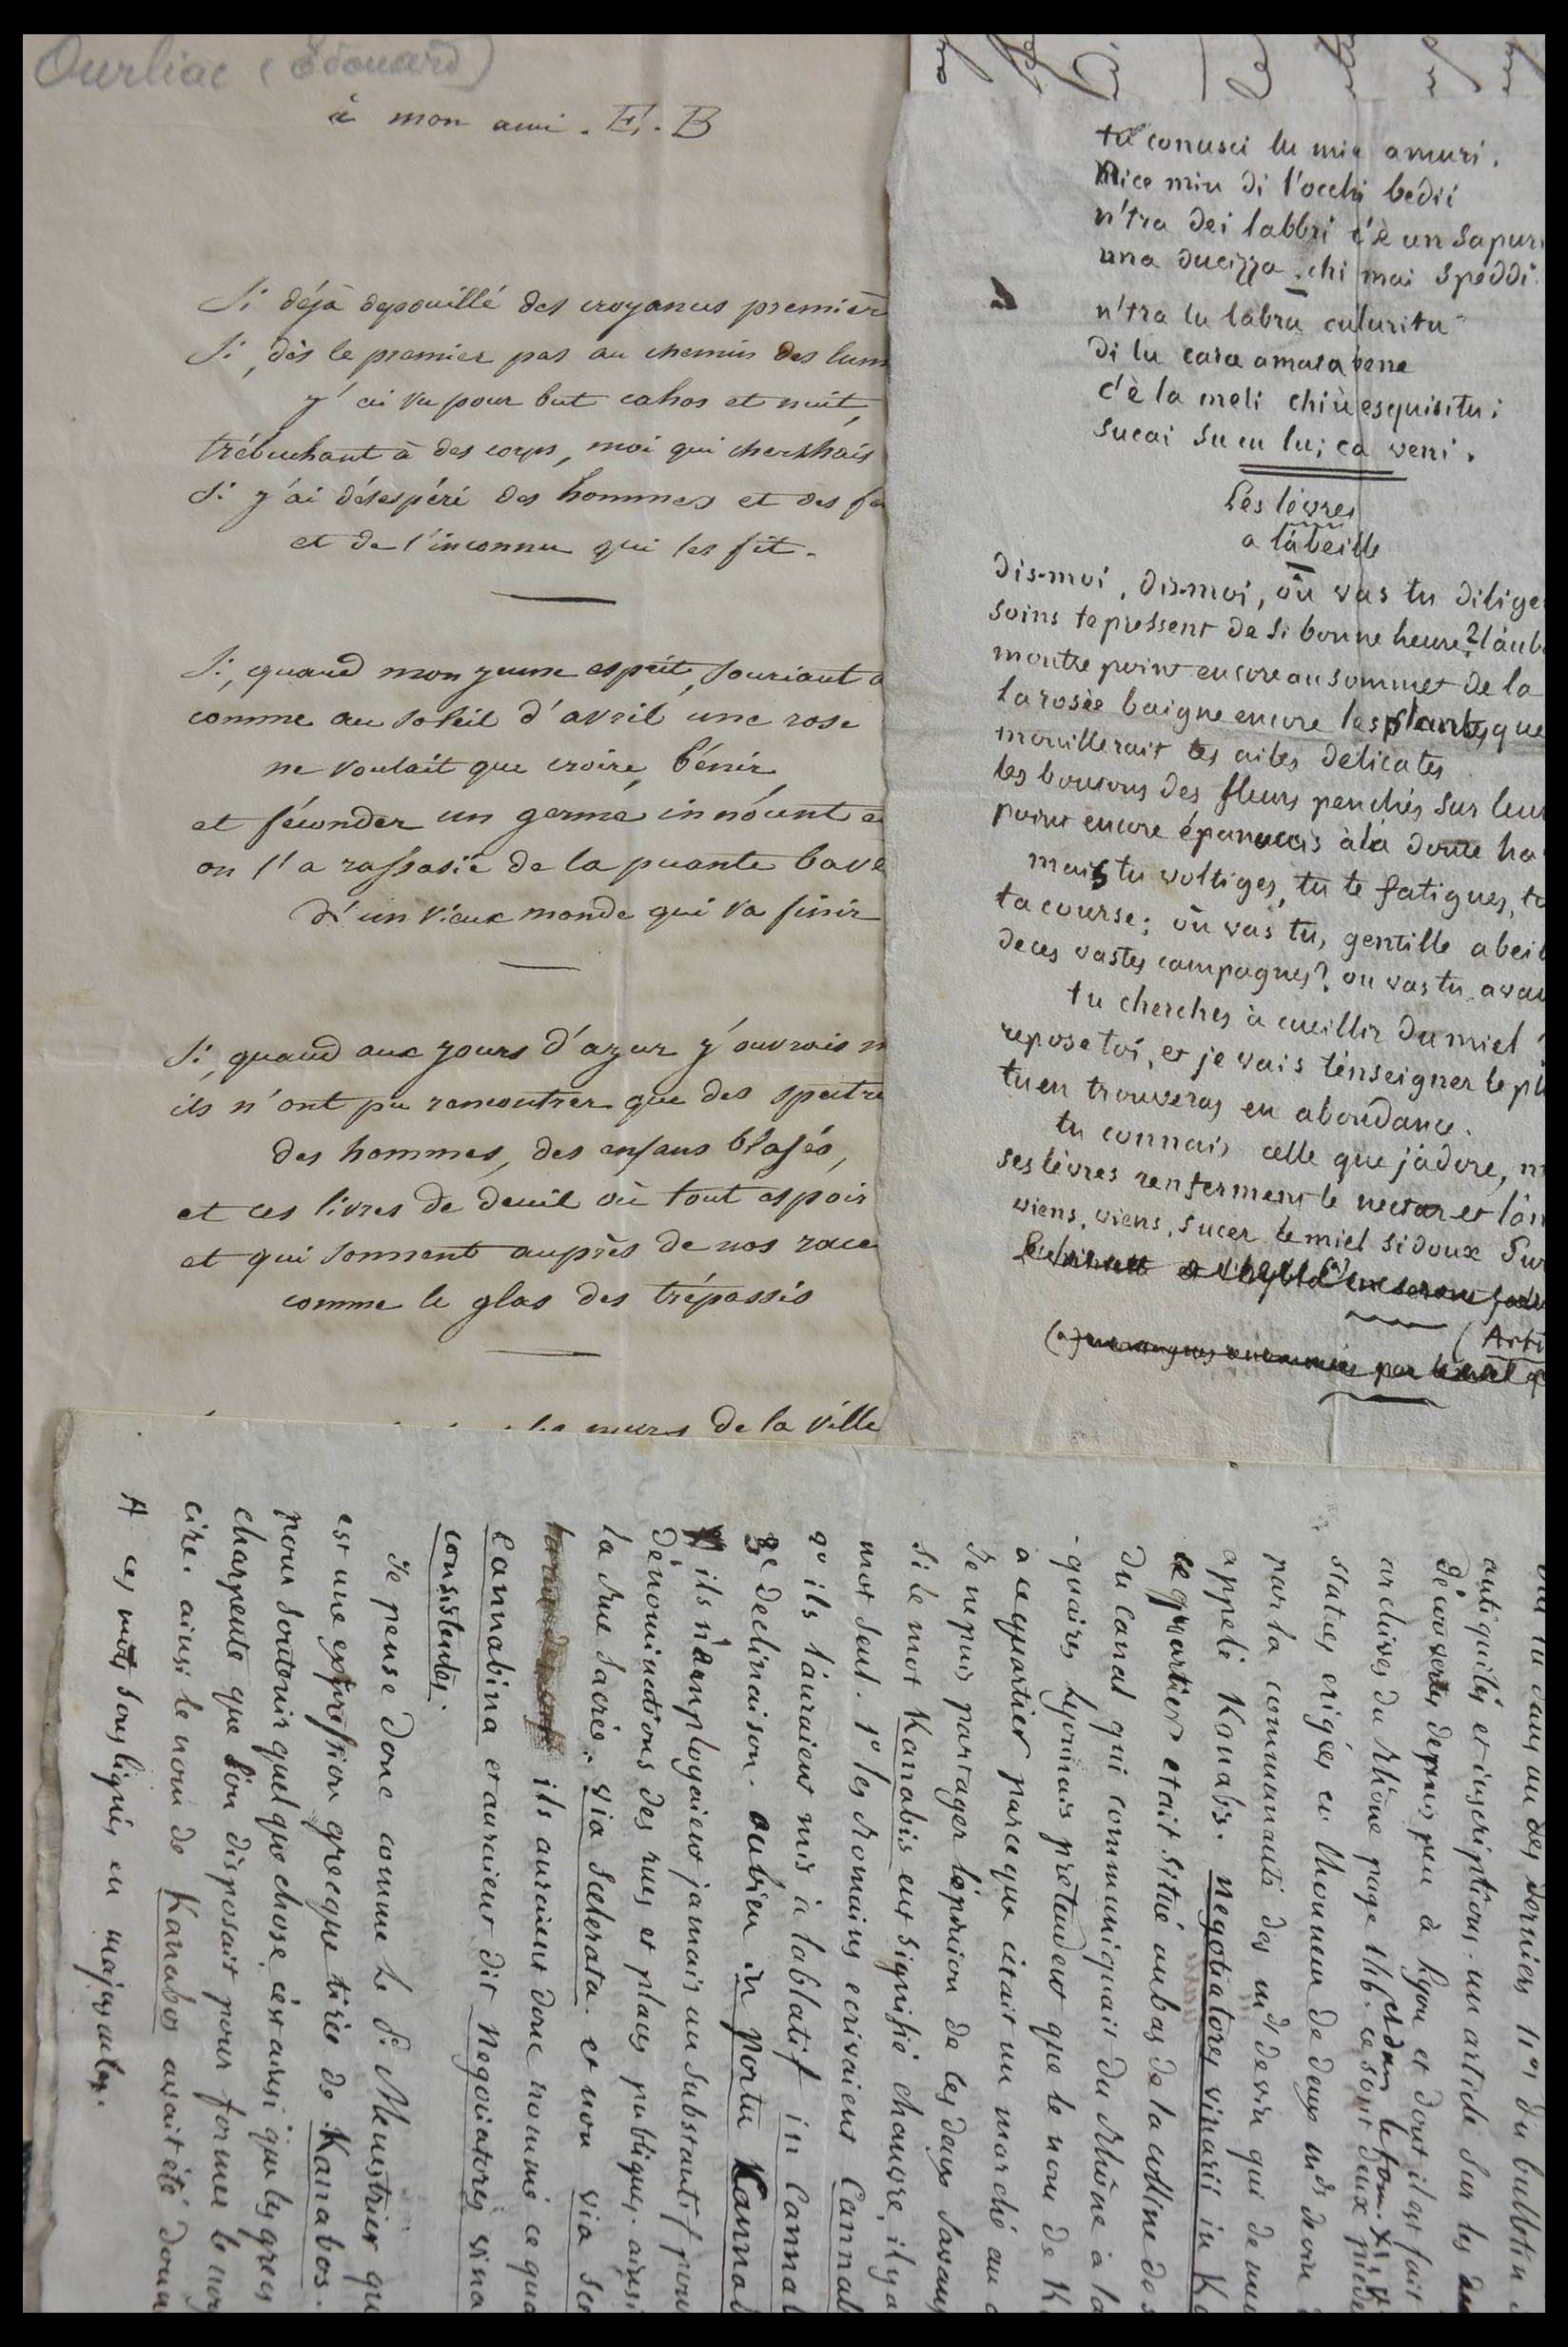 Ourliac (Edouard)
à mon ami. E. B
Si déjà depouillé des croyances premièr
Si, dès le premier pas au chemin des lum
j'ai vu pour but cahos et nuit,
trébuchant à des corps, moi qui cherchais
Si j'ai désespéré des hommes et des fa
et de l'inconnu qui les fit.
Si, quand mon jeune esprit, souriant a
comme au soleil d'avril une rose
ne voulait que croire, bénir,
et féconder un germe innocent e
on l'a rassasié de la puante bave
d'un vieux monde qui va finir
Si, quand aux jours d'azur j'ouvrais m
ils n'ont pu rencontrer que des spectre
des hommes, des enfans blasés,
et ces livres de deuil où tout espoir
et qui sonnent auprès de nos race
comme le glas des trépassés
les murs de la ville
tu conusci lu mia amuri.
Nice miu di l'occhi beddi
n'tra dei labbri c'è un sapuri
una ducizza, chi mai speddi.
n'tra lu labru culuritu
di lu cara amara bene
c'è la meli chiù esquisitu:
sucai sucu lu; ca veni.
Les lèvres
a l'abeille
dis-moi, dis-moi, où vas tu dilige
soins te pressent de si bonne heure? l'aub
montre point encore au sommet de la
la rosée baigne encore les plantes, que
mouillerait tes ailes delicates
les boutons des fleurs penchés sur leur
point encore épanouis à la douce ha
mais tu voltiges, tu te fatigues, tu
ta course; où vas tu, gentille abeil
de ces vastes campagnes? ou vas tu avan
tu cherches à cueillir du miel?
repose toi, et je vais t'enseigner le pl
tu en trouveras en abondance.
tu connais celle que j'adore, m
ses lèvres renferment le nectar et l'am
viens, viens, sucer le miel si doux sur
(Arti
par
du bulletin
antiquités et inscriptions. un article sur les
découvertes depuis peu à Lyon et dont il est fait
archives du Rhône page 116. ce sont deux piede
statues erigées en l'honneur de deux mds de vin
par la communauté des mds de vin qui demeu
appelé Kanabis. negotiatores vinarii in Ka
ce quartier etait situé au bas de la colline de s
du canal qui communiquait du Rhône à la
-quaires Lyonnais prétendent que le nom de K
a ce quartier parce que c'était un marché au c
Je ne puis partager l'opinion de les deux savans
si le mot Kanabis eut signifié chanvre, il y a
mot seul. 1° les Romains ecrivaient Cannab
qu'ils l'auraient mis à l'ablatif in Cannab
3e declinaison. oubien in portu Cannab
ils n'employaient jamais un substantif pour
dénominations des rues et places publiques. ainsi
la Rue Sacrée. via scelerata. et non via sce
ils auraient donc nommé ce qua
Cannabina et auraient dit negociatores vina
consistentes.
Je pense donc comme le P. Menestrier qu
est une expression grecque tirée de Kanabos.
pour soutenir quelque chose, c'est ainsi que les grecs
charpente que l'on disposait pour former le noy
cire. ainsi le nom de Kanabos avait été donn
A ces mots soulignés en majuscules.